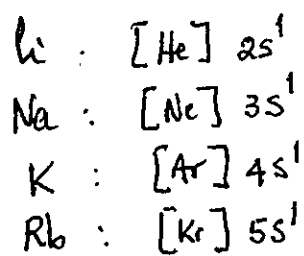 Li : [He] 2s¹
Na : [Ne] 3s¹
K : [Ar] 4s¹
Rb : [Kr] 5s¹